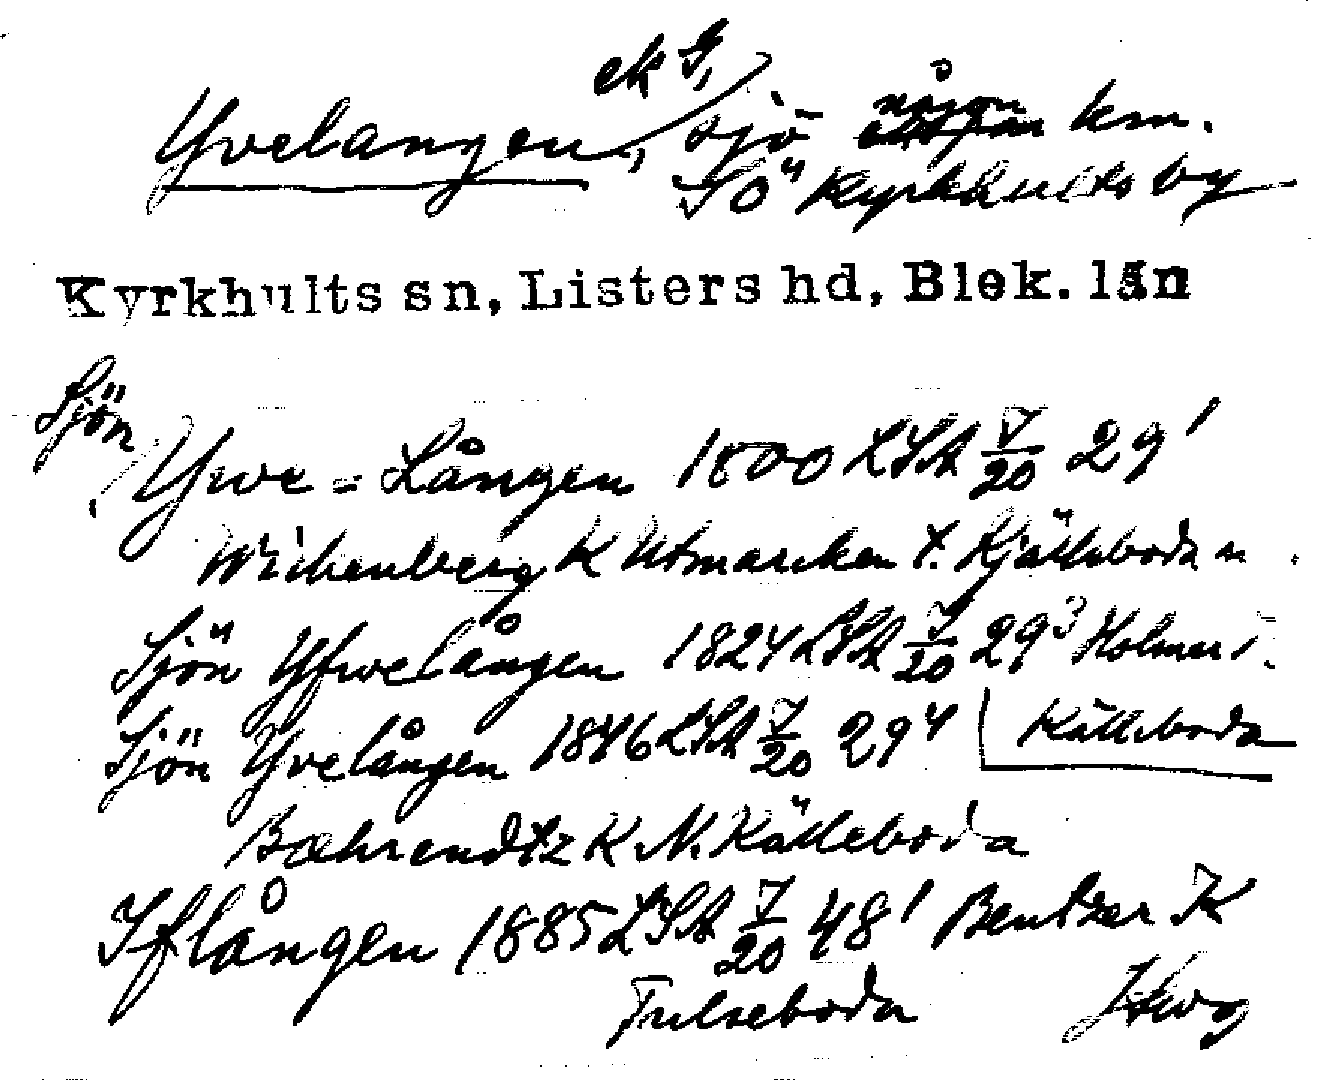 ek G,
Yvelangen, sjö någon km.
SÖ Kyrkhults by
Kyrkhults sn, Listers hd, Blek. län
Sjön
Ywe=Lången 1800 LSA 7/20 29¹
Wichenberg K Utmarken t. Kjälleboda n.
Sjön Yfwelången 1824 LSA 7/20 29³ Holmer i.
Sjön Yvelången 1846 LSA 7/20 29⁴ Källeboda
Bæhrendtz K N. Källeboda
Iflången 1885 LSA 7/20 48¹ Bentzer K
Fulseboda